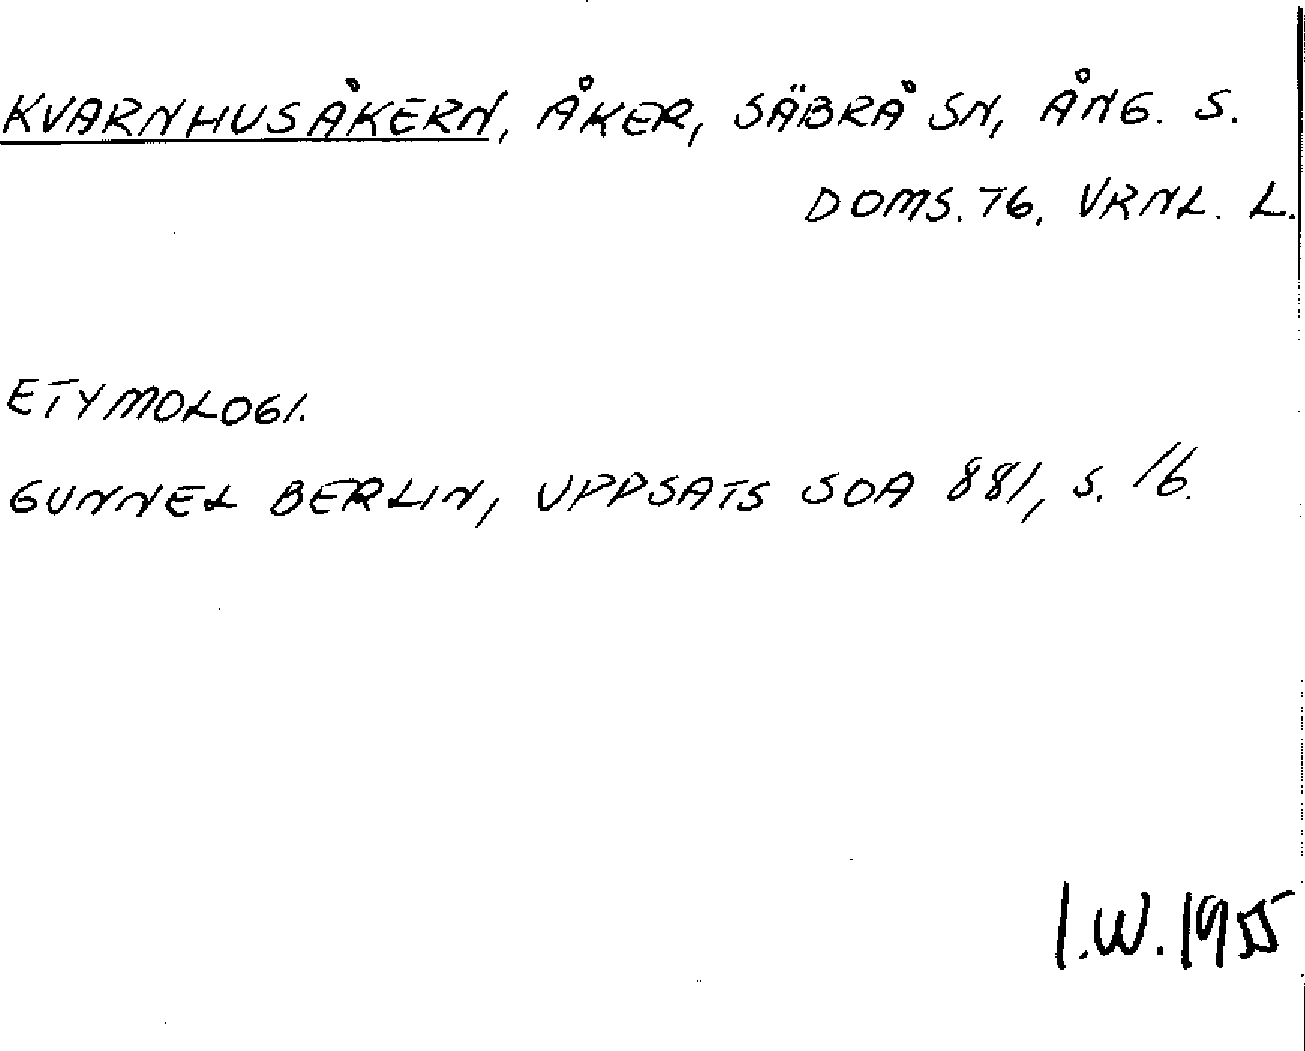 KVARNHUSÅKERN, ÅKER, SÄBRÅ SN, ÅNG. S.
DOMS. 76, VRNL. L.
ETYMOLOGI.
GUNNEL BERLIN, UPPSATS SOA 881, S. 16.
I.W. 1955